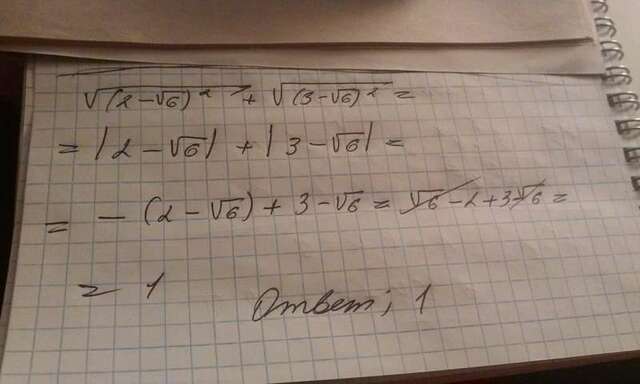 √(2-√6)² + √(3-√6)² =
= |2-√6| + |3-√6| =
= -(2-√6) + 3-√6 = √6-2+3-√6 =
= 1
Ответ; 1